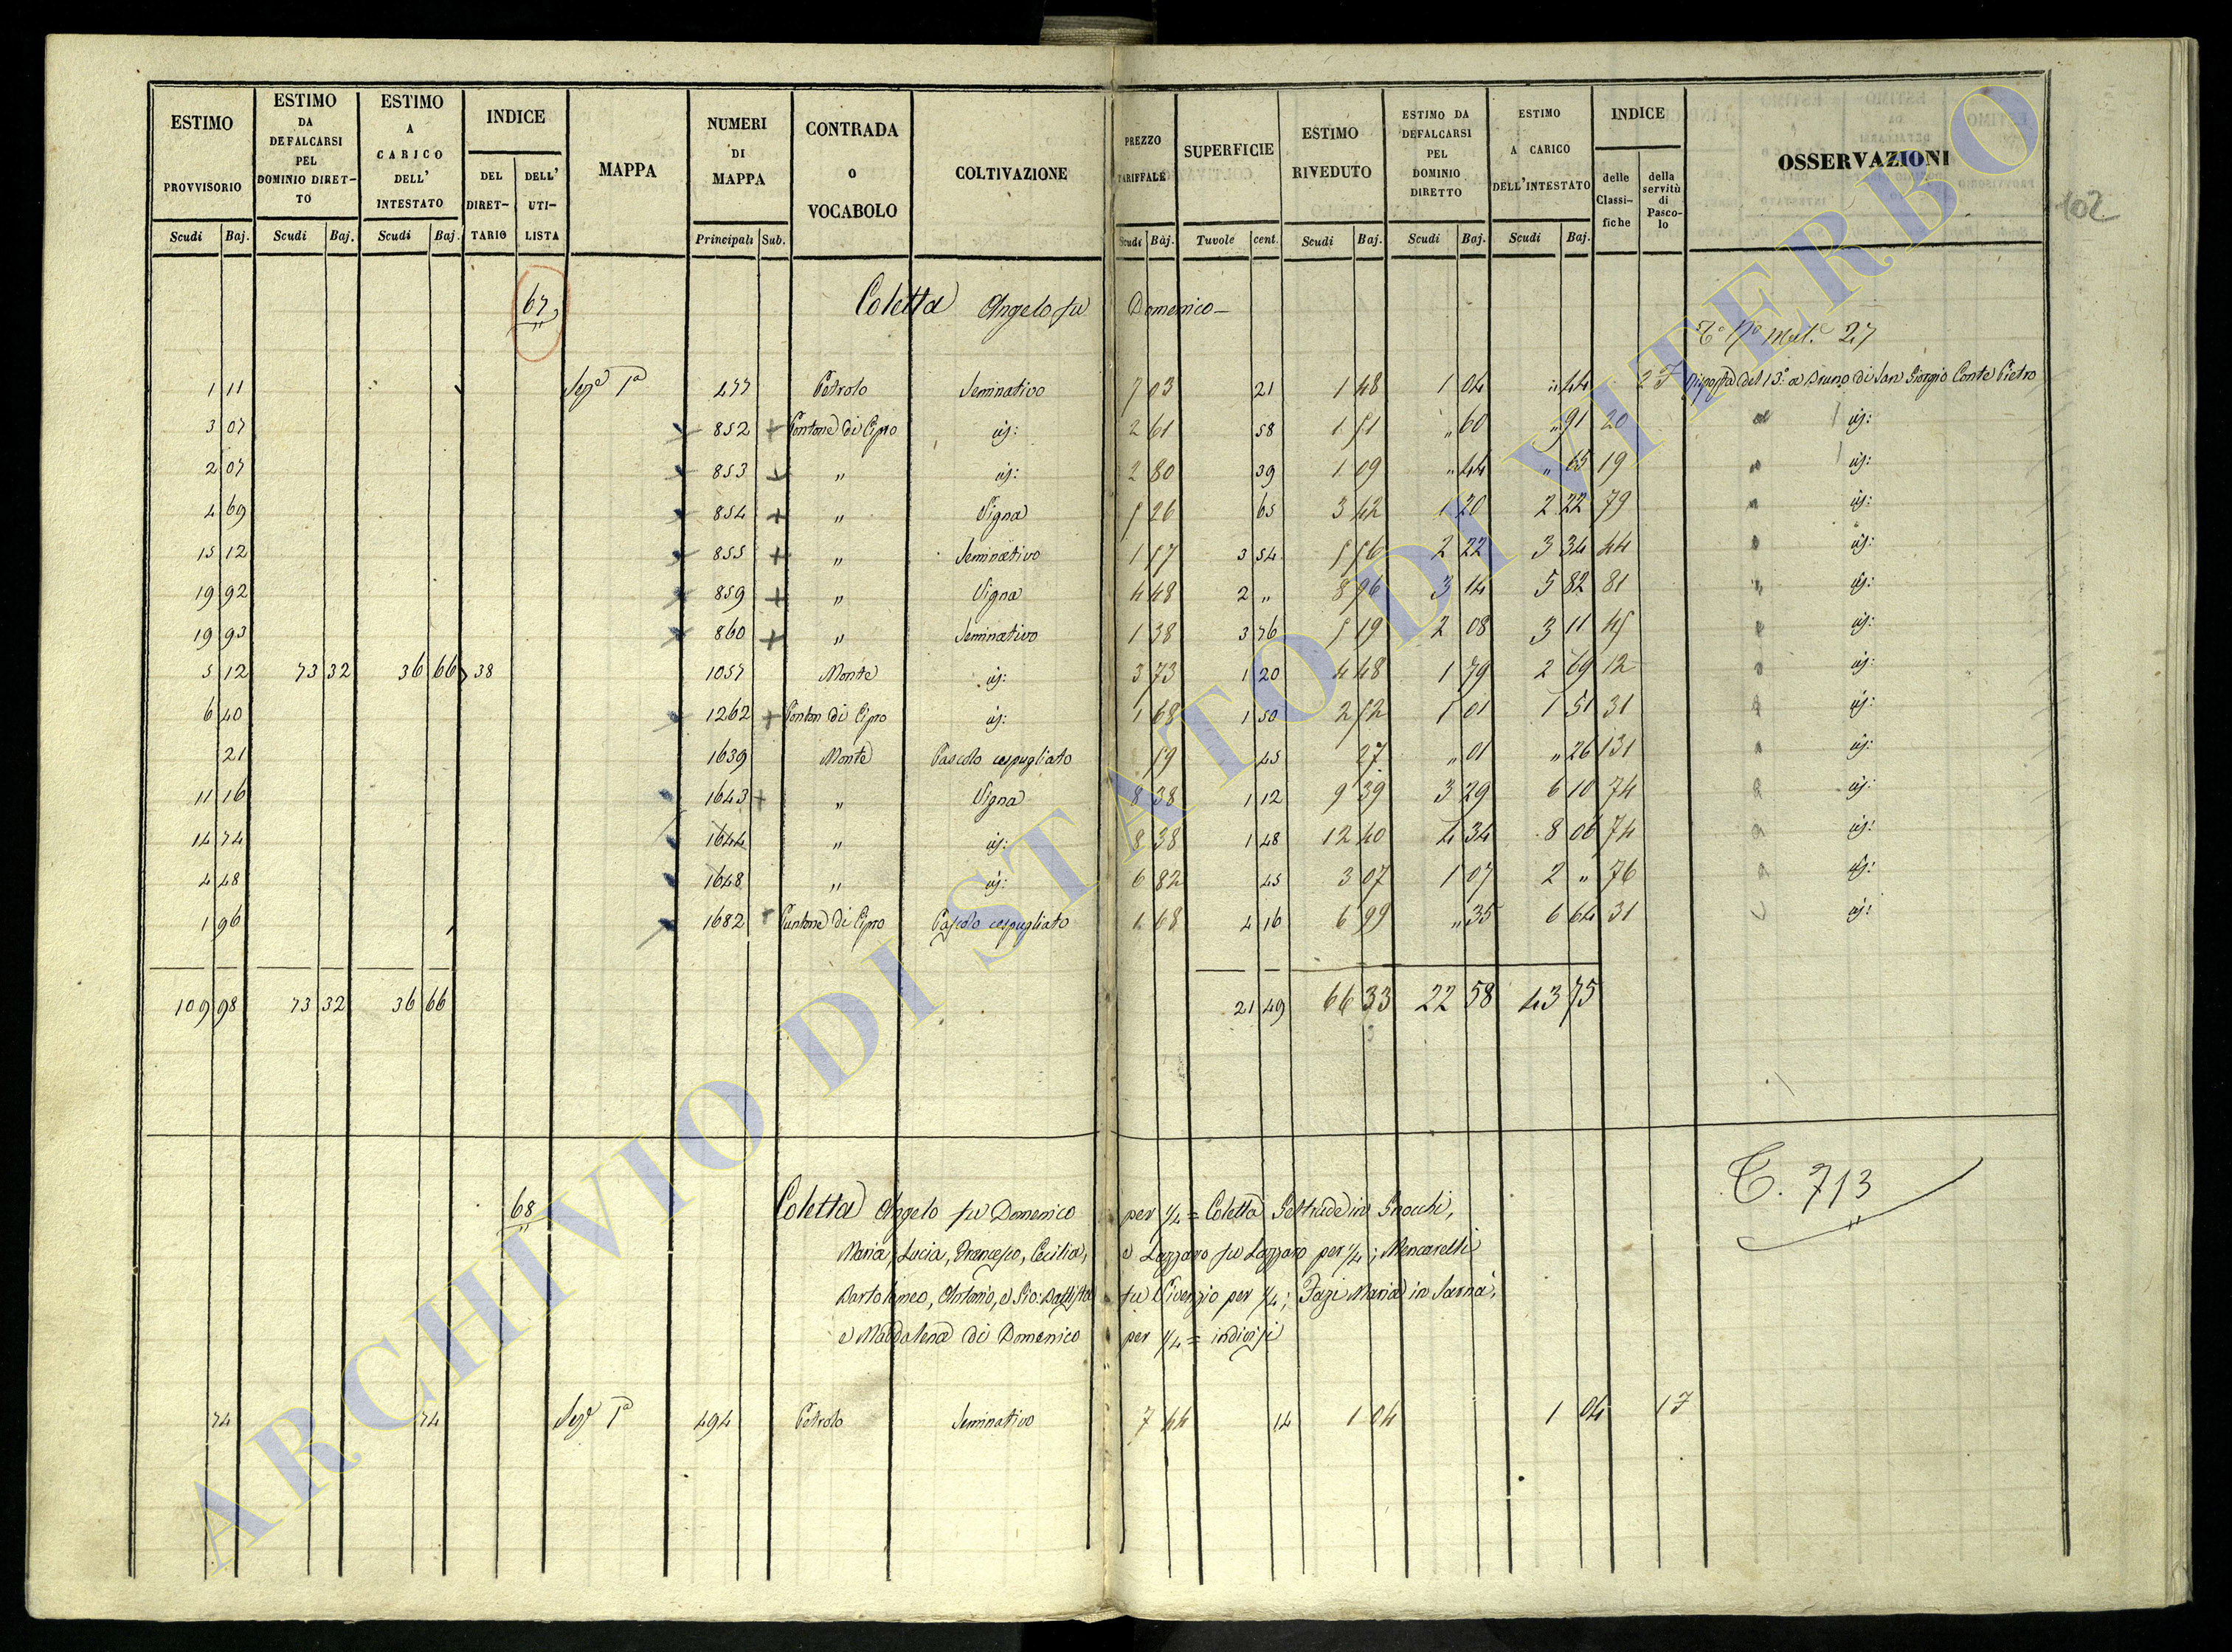 ESTIMO PROVVISORIO Scudi Baj. ESTIMO DA DEFALCARSI PEL DOMINIO DIRETTO Scudi Baj. ESTIMO A CARICO DELL' INTESTATO Scudi Baj. INDICE DEL DIRETTARIO DELL' UTILISTA MAPPA NUMERI DI MAPPA Principali Sub. CONTRADA O VOCABOLO COLTIVAZIONE PREZZO TARIFFALE Scudi Baj. SUPERFICIE Tavole cent. ESTIMO RIVEDUTO Scudi Baj. ESTIMO DA DEFALCARSI PEL DOMINIO DIRETTO Scudi Baj. ESTIMO A CARICO DELL'INTESTATO Scudi Baj. INDICE delle Classifiche della servitù di Pascolo OSSERVAZIONI
102
67 Coletta Angelo fu Domenico
Mat. 27
1 11 Sez.e 1a 477 Petrolo Seminativo 7 03 21 1 48 1 04 " 44 2 Risposta del 13.o a Bruno di San Giorgio Conte Pietro
3 07 852 + Pontone di Cipro id: 2 61 58 1 51 " 60 " 91 20 id:
2 07 853 + " id: 2 80 39 1 09 " 44 " 65 19 id:
4 69 854 + " Vigna 5 26 65 3 42 1 20 2 22 79 id:
15 12 855 + " Seminativo 1 57 3 54 5 56 2 22 3 34 44 id:
19 92 859 + " Vigna 4 48 2 " 8 96 3 14 5 82 81 id:
19 93 860 + " Seminativo 1 38 3 76 5 19 2 08 3 11 45 id:
5 12 73 32 36 66 38 1057 Monte id: 3 73 1 20 4 48 1 79 2 69 12 id:
6 40 1262 + Ponton di Cipro id: 1 68 1 50 2 52 1 01 1 51 31 id:
21 1639 Monte Pascolo cespugliato 59 45 27 " 01 " 26 131 id:
11 16 1643 + " Vigna 8 38 1 12 9 39 3 29 6 10 74 id:
14 74 1644 " id: 8 38 1 48 12 40 4 34 8 06 74 id:
4 48 1648 " id: 6 82 45 3 07 1 07 2 " 76 id:
1 96 1682 Puntone di Cipro Pascolo cespugliato 1 68 4 16 6 99 " 35 6 64 31 id:
109 98 73 32 36 66 21 49 66 33 22 58 43 75
T. 713
68 Coletta Angelo fu Domenico per 1/4 = Coletta Geltrude in Gnocchi,
Maria, Lucia, Francesco, Cecilia, e Lazzaro fu Lazzaro per 1/4; Mencarelli
Bartolomeo, Antonio, e Gio: Battista fu per 1/4; Fazi Maria in Sarna,
e Maddalena di Domenico per 1/4 = indivisi
74 74 Sez.e 1a 494 Petrolo Seminativo 7 44 14 1 04 1 04 1
ARCHIVIO DI STATO DI VITERBO